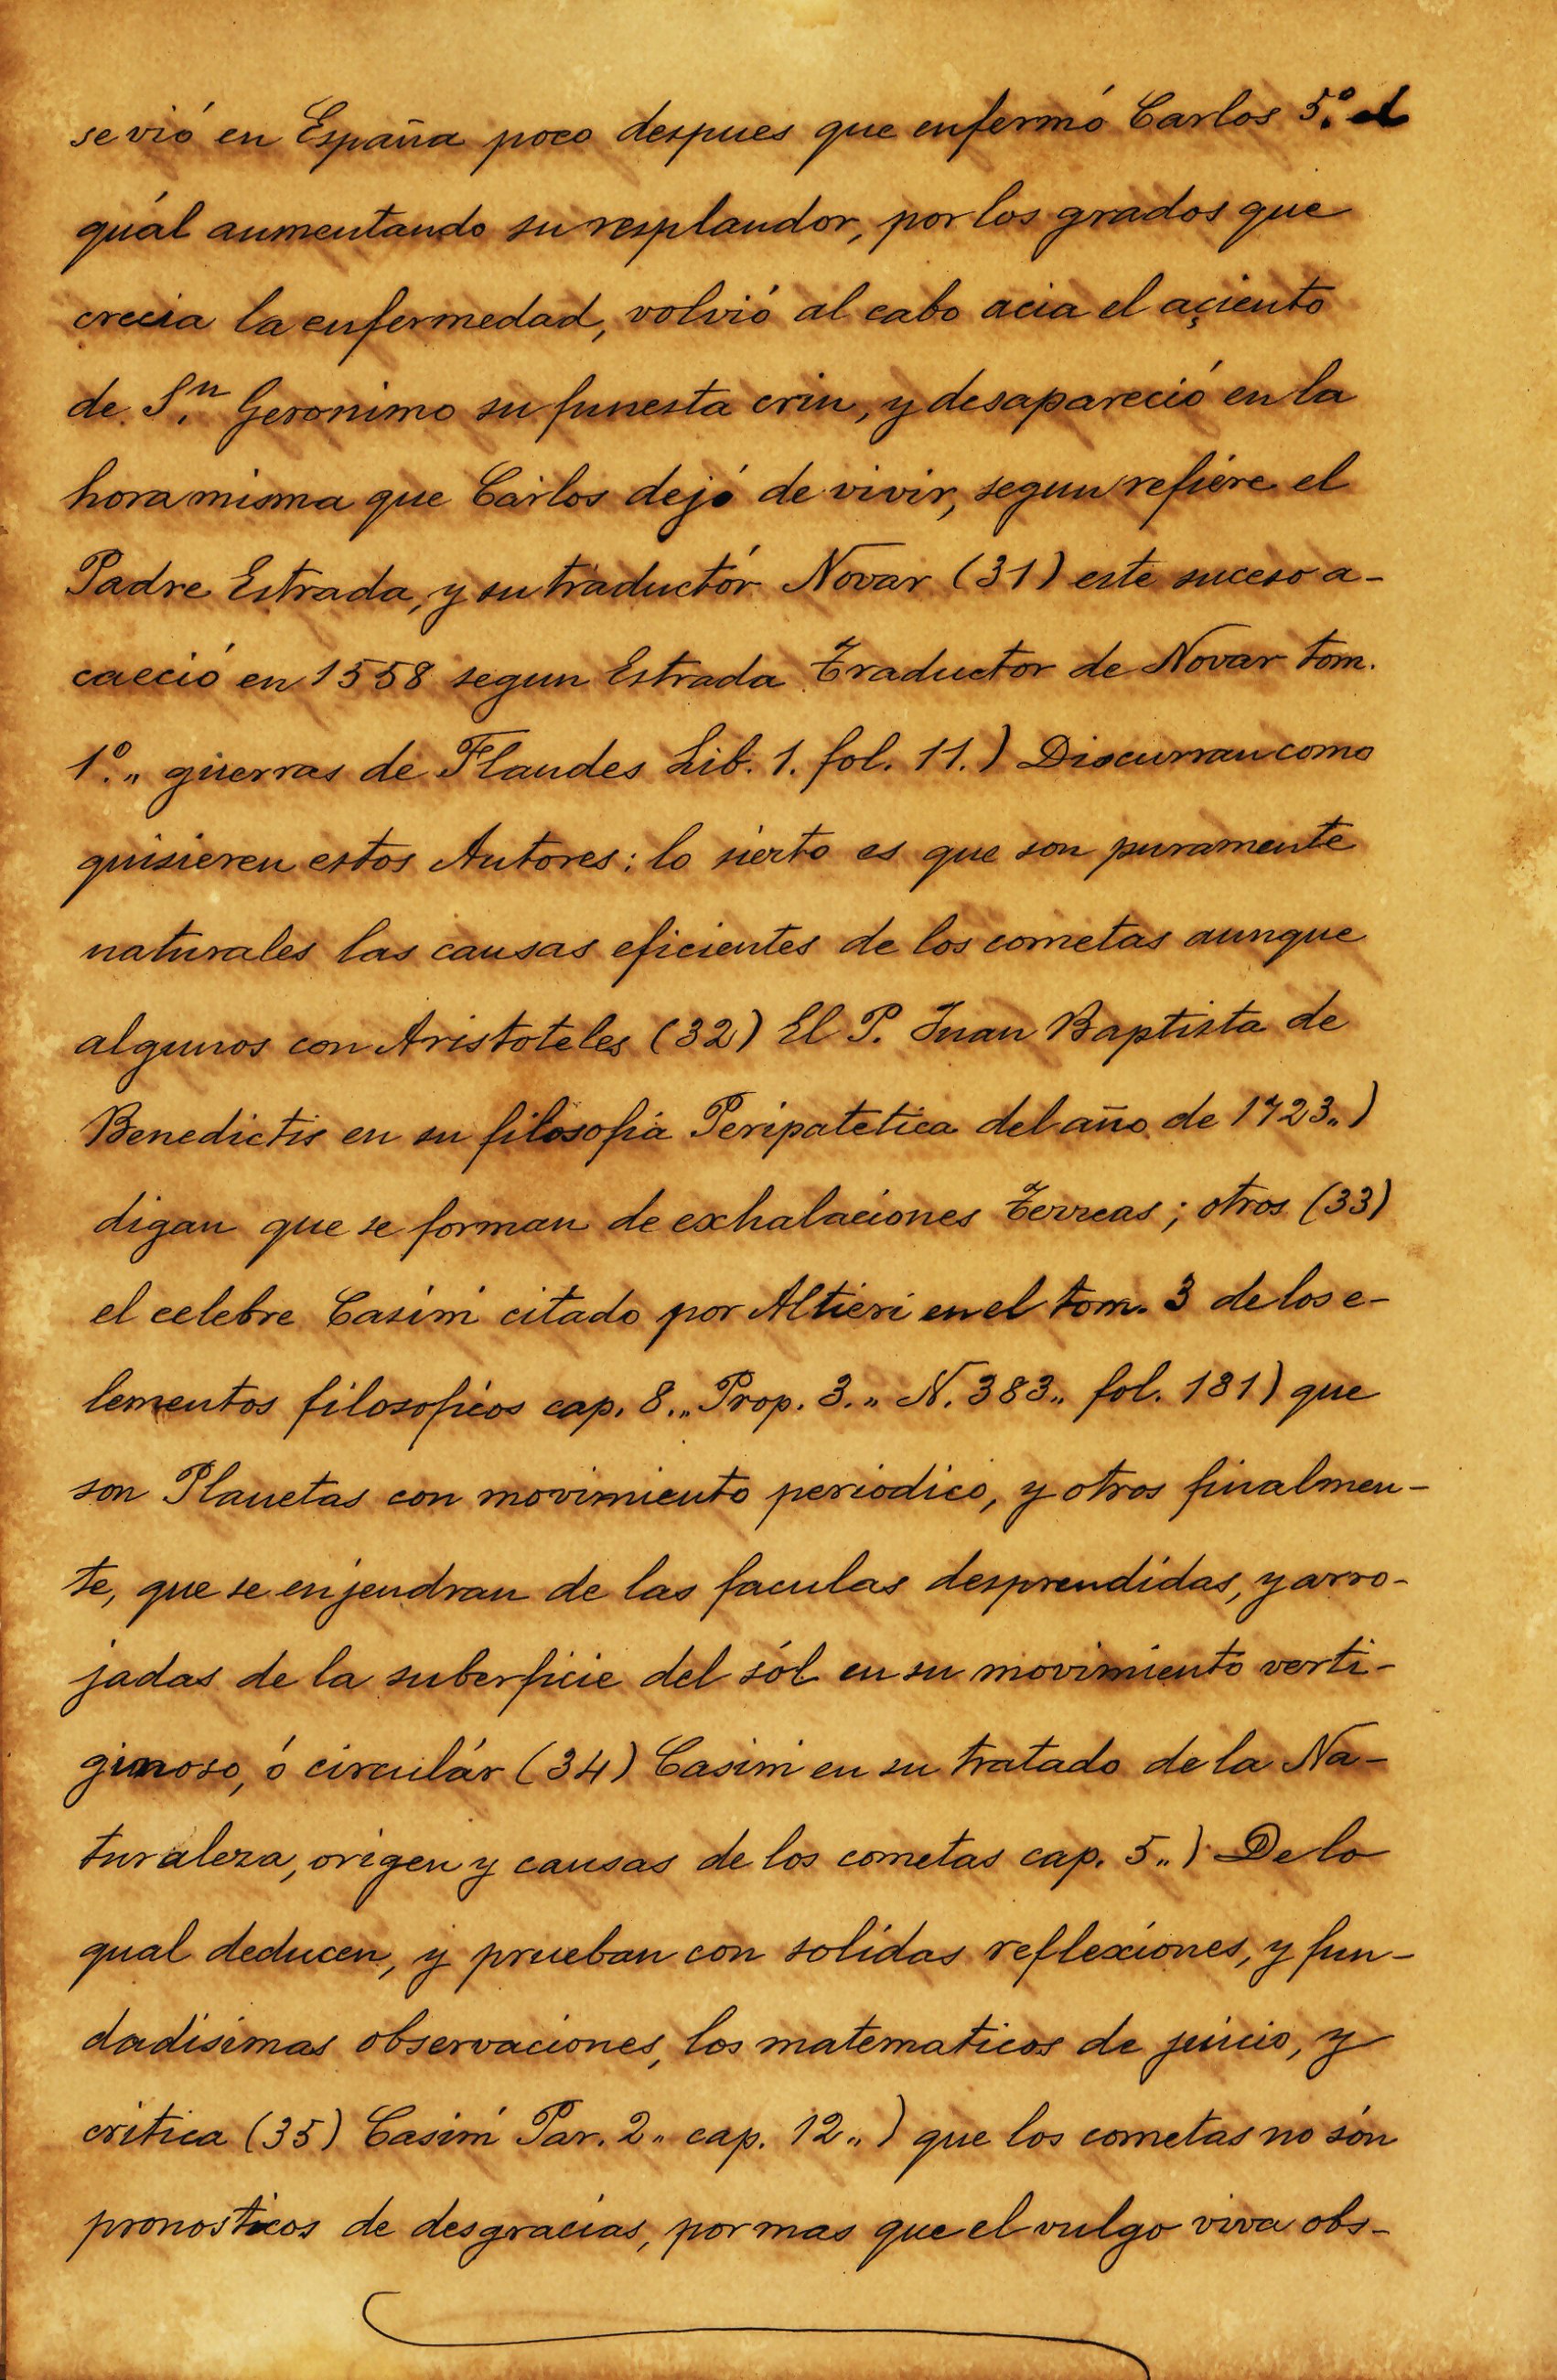 se vió en España poco despues que enfermó Carlos 5.º el
quál aumentando su resplandor, por los grados que
crecia la enfermedad, volvió al cabo acia el açiento
de S.ⁿ Geronimo su funesta crin, y desapareció en la
hora misma que Carlos dejó de vivir, segun refiere el
Padre Estrada, y su traductór Novar (31) este suceso a-
caeció en 1558 segun Estrada Traductor de Novar tom.
1.º „ guerras de Flandes Lib. 1. fol. 11.) Discurran como
quisieren estos Autores: lo sierto es que son puramente
naturales las causas eficientes de los cometas aunque
algunos con Aristoteles (32) El P. Juan Baptista de
Benedictis en su filosofia Peripatetica del año de 1723„)
digan que se forman de exhalaciones Terreas; otros (33)
el celebre Casini citado por Altieri en el tom. 3 de los e-
lementos filosoficos cap. 8.„ Prop. 3.„ N. 383„ fol. 181) que
son Planetas con movimiento periodico, y otros finalmen-
te, que se enjendran de las faculas desprendidas, y arro-
jadas de la suberficie del sól en su movimiento verti-
ginoso, ó circulár (34) Casini en su tratado de la Na-
turaleza, origen y causas de los cometas cap. 5„) De lo
qual deducen, y prueban con solidas reflexiones, y fun-
dadisimas observaciones, los matematicos de juicio, y
critica (35) Casini Par. 2„ cap. 12„) que los cometas no són
pronosticos de desgracias, por mas que el vulgo viva obs-